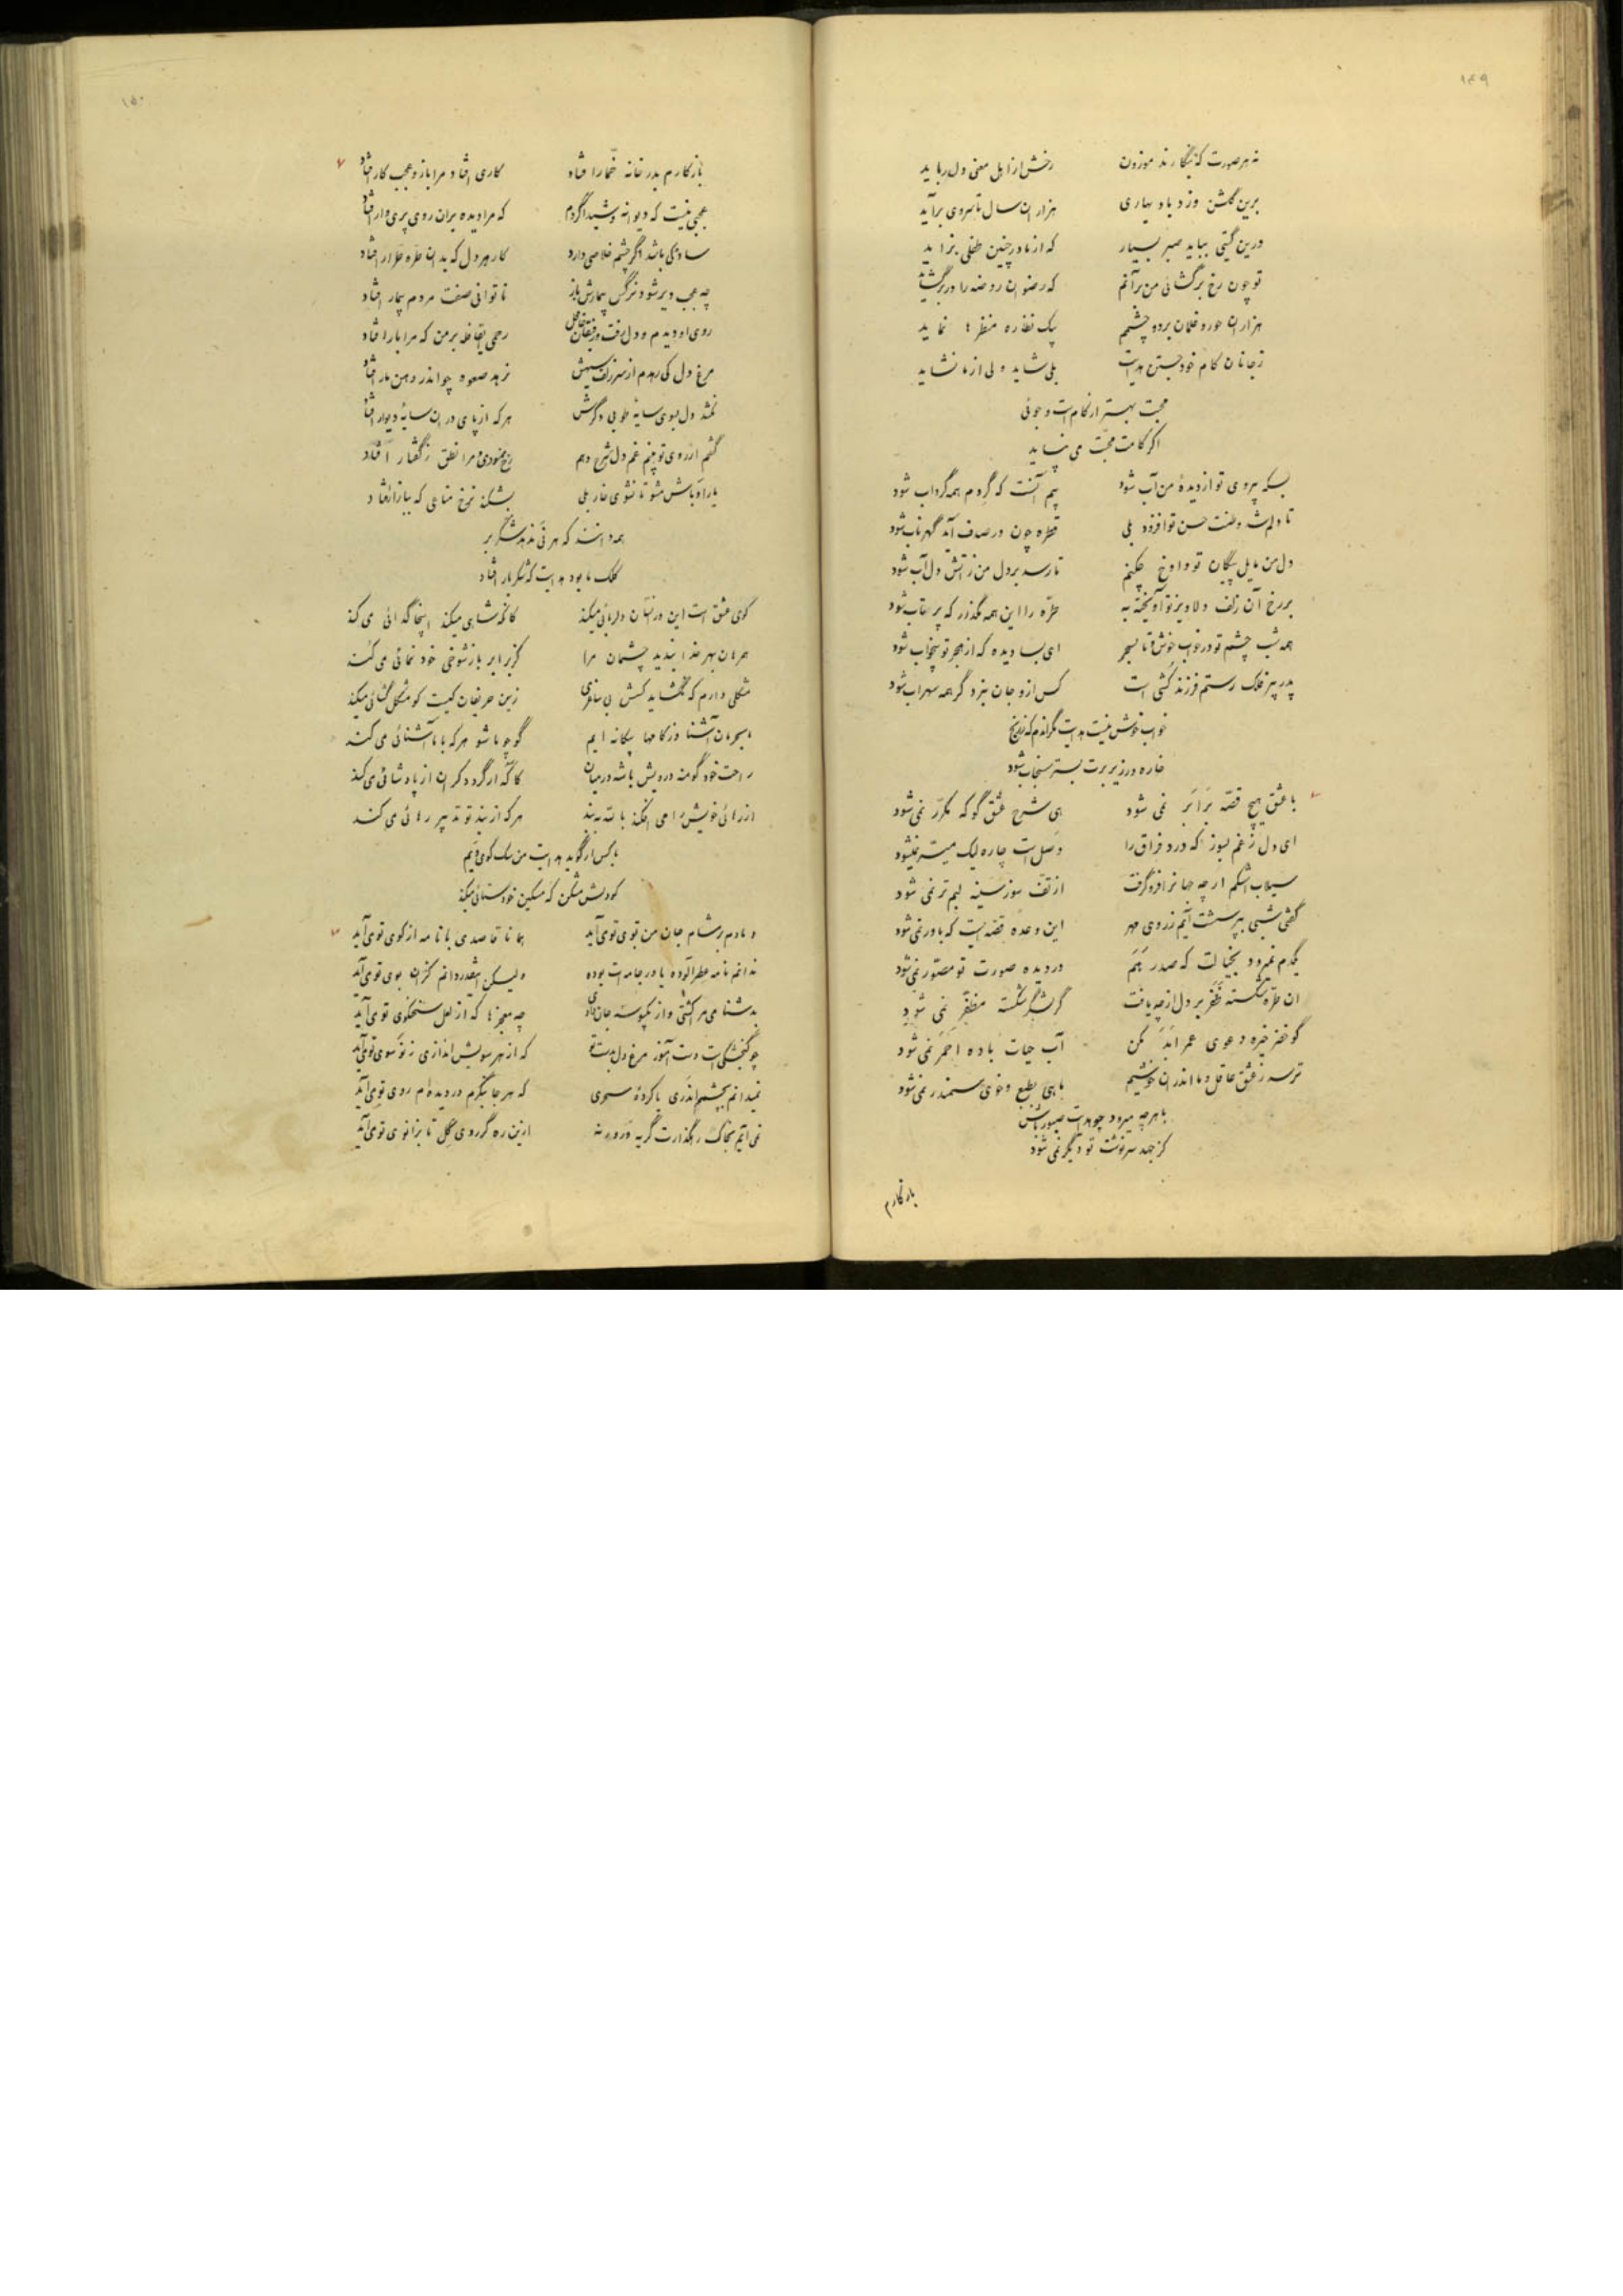 ۱۴۹
نه هر صورت که بنگارند موزون رخش از اهل معنی دل رباید
برین گلشن وزد باد بهاری هزاران سال تا سروی برآید
درین گیتی بباید صبر بسیار که از مادر چنین طفلی بزاید
تو چون رخ برگشائی من برآنم که رضوان روضه را در
هزاران حور و غلمان بر دو چشمم یک نظاره منظر ها نماید
ز جانان کام خود جستن هدایت بلی شاید ولی از ما نشاید
محبت بهتر از کام است و جوئی
اگر کامت محبت می نپاید
بسکه بیروی تو از دیده من آب شود بیم آنست که گردم همه گرداب شود
تا دلم شد وطنت حسن تو افزود بلی قطره چون در صدف آید گهر ناب شود
دل من مایل پیکان تو و اوخ چکنم تا رسد بر دل من ز آتش دل آب شود
بر رخ آن زلف دلاویز تو آویخته به طره را این همه مگذر که پر تاب شود
همه شب چشم تو در خواب خوش و تا بسحر ای بسا دیده که از هجر تو بیخواب شود
پدر پیر فلک رستم فرزند کشی است کس ازو جان نبرد گر همه سهراب شود
خواب خوش نیست هدایت مگر اندم که ز رنج
خاره در زیر برت بستر سنجاب شود
با عشق هیچ قصه برابر نمی شود هی شرح عشق گو که مکرر نمی شود
ای دل ز غم بسوز که درد فراق را وصل است چاره لیک میسر نمیشود
سیلاب اشکم ار چه جهانرا فرو گرفت از تف سوز سینه لبم تر نمی شود
گفتی شبی بپرسشت آیم ز روی مهر این وعده قصه ایست که باور نمی شود
یکدم نمیرود بخیالت که صدر هم در دیده صورت تو مصور نمی شود
ان طره شکسته ظفر بر دل از چه یافت گر لشگر شکسته مظفر نمی شود
گو خضر خیره دعوی عمر ابد مکن آب حیات باده احمر نمی شود
ترسد ز عشق عاقل و ما اندران خوشیم ماهی بطبع و خوی سمندر نمی شود
با هر چه میرود چو هدایت صبور باش
کز جهد سرنوشت تو دیگر نمی شود
باز کارم
۱۵۰
باز کارم بدر خانه خمار افتاد کاری افتاد مرا باز و عجب کار افتاد
عجبی نیست که دیوانه و شیدا گردم که مرا دیده بران روی پری وار افتاد
ساده کی باشد اگر چشم خلاصی دارد کار هر دل که بدان طره طرار افتاد
چه عجب دیر شود نرگس بیمارش باز ناتوانی صفت مردم بیمار افتاد
روی او دیدم و دل رفت و رفیقان غافل رحمی ای قافله بر من که مرا بار افتاد
مرغ دل کی رهد از سر زلف سیهش نرهد صعوه چو اندر دهن مار افتاد
نکشد دل بسوی سایه طوبی دگرش هر که از پای در ان سایه دیوار افتاد
گفتم ار روی تو بینم غم دل شرح دهم رخ نمودی و مرا نطق ز گفتار افتاد
یار اوباش مشو تا نشوی خار بلی بشکند نرخ متاعی که ببازار افتاد
همه دانند که هر نی ندهد شکر بر
کلک ما بود هدایت که شکر بار افتاد
گوی عشق است این و رندان دلربائی میکند کانکه شاهی میکند اینجا گدائی می کند
همرهان بهر خدا بندید چشمان مرا کز برابر باز شوخی خود نمائی می کند
مشکلی دارم که نگشاید کسش بی ساغری زین حریفان کیست کو مشکل گشائی میکند
با محرمان آشنا وز کامها بیگانه ایم گو چو ما شو هر که با ما آشنائی می کند
راحت خود گو منه درویش باشد در میان کانکه ار گردد گران از پادشائی می کند
از رهائی خویش را می افکند بالله به بند هر که از بند تو تدبیر رهائی می کند
با کس ار گوید هدایت من سگ کوی ویم
گو دلش مشکن که مسکین خود ستائی میکند
دمادم بر مشام جان من بوی تو می آید همانا قاصدی با نامه از کوی تو می آید
ندانم نامه عطر آلوده یا در جامه ات بوده ولیکن اینقدر دانم کزان بوی تو می آید
بدشنامی مر اکشتی و از یک بوسه جان دادی چه معجز ها که از لعل سخنگوی تو می آید
چو گنجشکی است دست آموز مرغ دل بدست تو که از هر سویش اندازی ز نو سوی تو می آید
نمیدانم بچشم اندری یا کرده سحری که هر جا بنگرم در دیده ام روی تو می آید
نمی آیم بخاک رهگذارت گریه ورنه ازین ره گر روی گل تا بزانوی تو می آید